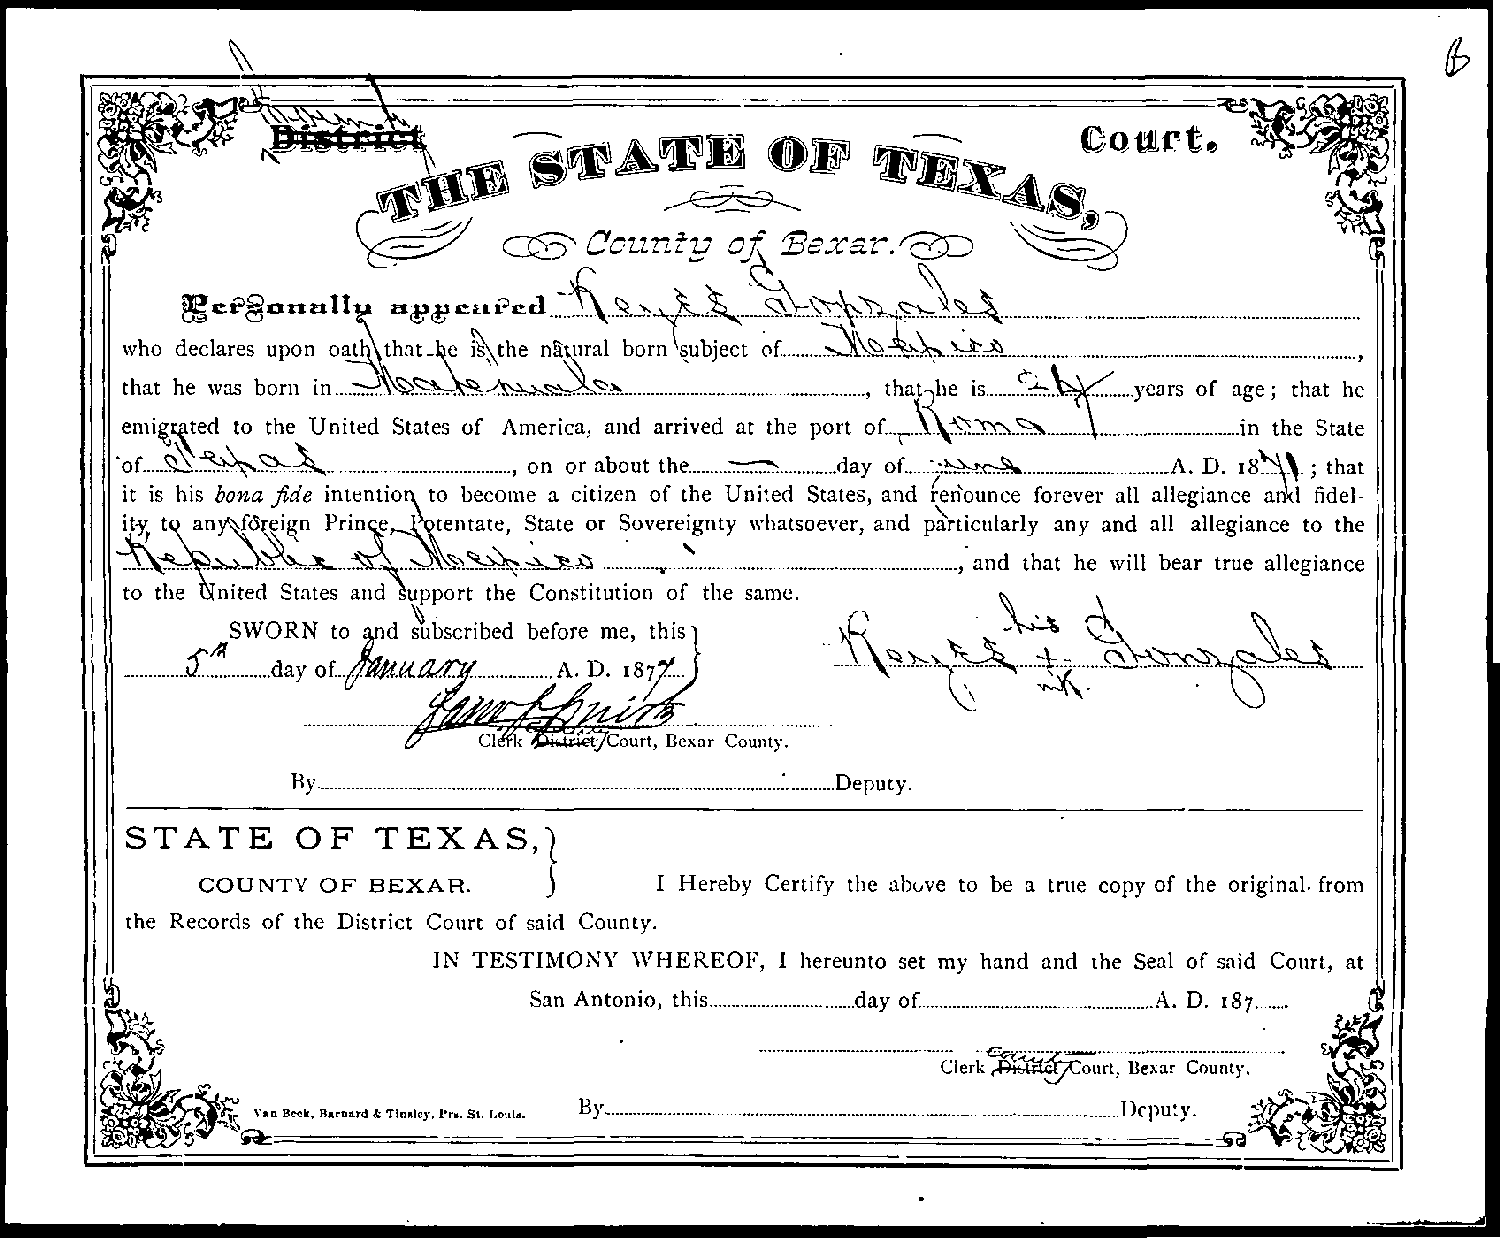 B
District Court.
THE STATE OF TEXAS,
County of Bexar.
Personally appeared Reyes Gonzales
who declares upon oath that he is the natural born subject of Mexico,
that he was born in , that he is years of age; that he
emigrated to the United States of America, and arrived at the port of Roma in the State
of Texas, on or about the — day of June A. D. 18 ; that
it is his bona fide intention to become a citizen of the United States, and renounce forever all allegiance and fidel-
ity, to any foreign Prince, Potentate, State or Sovereignty whatsoever, and particularly any and all allegiance to the
Republic of Mexico, and that he will bear true allegiance
to the United States and support the Constitution of the same.
SWORN to and subscribed before me, this
5th day of January A. D. 1877
his
Reyes + Gonzales
mk.
Sam S Smith
Clerk District Court, Bexar County.
By Deputy.
STATE OF TEXAS,
COUNTY OF BEXAR.
I Hereby Certify the above to be a true copy of the original from
the Records of the District Court of said County.
IN TESTIMONY WHEREOF, I hereunto set my hand and the Seal of said Court, at
San Antonio, this day of A. D. 187
County
Clerk District Court, Bexar County.
By Deputy.
Van Beek, Barnard & Tinsley, Prs. St. Louis.